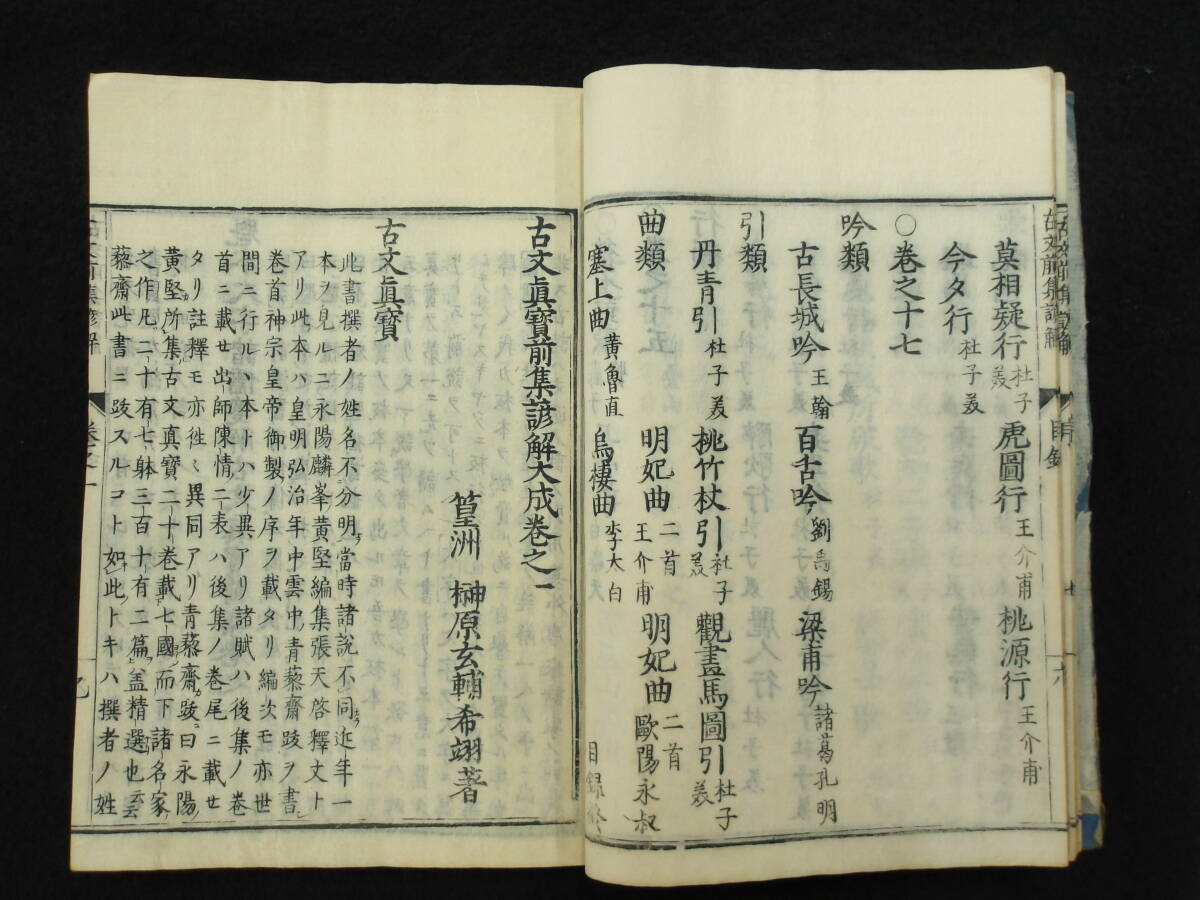 莫相疑行 杜子美 虎圖行 王介甫 桃源行 王介甫
今夕行 杜子美
○卷之十七
吟類
古長城吟 王翰 百舌吟 劉禹錫 梁甫吟 諸葛孔明
引類
丹青引 杜子美 桃竹杖引 杜子美 觀畫馬圖引 杜子美
曲類 明妃曲 二首 王介甫 明妃曲 二首 歐陽永叔
塞上曲 黄魯直 烏棲曲 李太白 目録終
古文眞寶前集諺解大成卷之一
篁洲 榊原玄輔希翊著
古文眞寶
此書撰者ノ姓名不分明當時諸說不同近年一
本ヲ見ルニ永陽麟峯黄堅編集張天啓釋文ト
アリ此本ハ皇明弘治年中雲中青藜齋跋ヲ書
卷首神宗皇帝御製ノ序ヲ載タリ編次モ亦世
間ニ行ルヽ本トハ少異アリ諸賦ハ後集ノ卷
首ニ載セ出師陳情二表ハ後集ノ卷尾ニ載セ
タリ註釋モ亦徃々異同アリ青藜齋跋曰永陽
黄堅所集古文真寶二十卷載七國而下諸名家
之作凡二十有七躰三百十有二篇蓋精選也云云
藜齋此書ニ跋スルコト如此トキハ撰者ノ姓